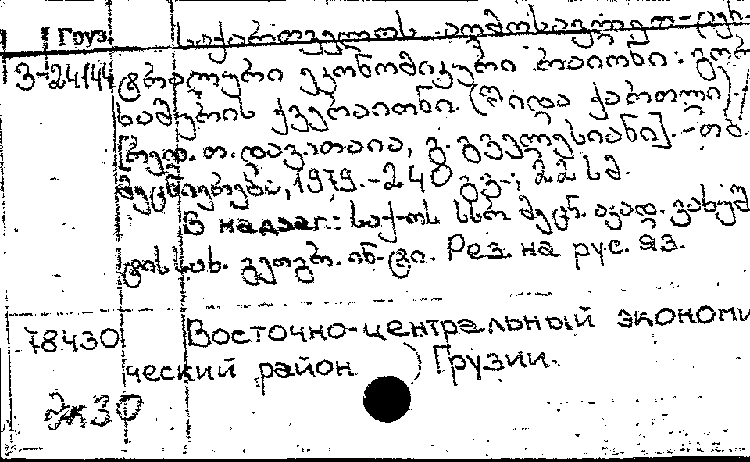 Груз. საქართველოს აღმოსავლეთ-ცენ
3-24144 ტრალური ეკონომიკური რაიონი: გორ-
ხაშურის ქვერაიონი. (შიდა ქართლი)
[რედ. თ. დავითაია, გ. გველესიანი]. - თბ.
მეცნიერება, 1979. - 240 გვ.; 22 სმ.
В надзаг.: საქ-ოს სსრ მეცნ. აკად. ვახუშ
ტის სახ. გეოგრ. ინ-ტი. Рез. на рус. яз.
78430 Восточно-центральный экономи
ческий район ) Грузии.
2к30